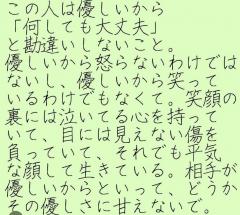 この人は優しいから
「何しても大丈夫」
と勘違いしないこと。
優しいから怒らないわけでは
ないし、優しいから笑って
いるわけでもなくて。笑顔の
裏には泣いてる心を持って
いて、目には見えない傷を
負っていて、それでも平気
な顔して生きている。相手が
優しいからといって、どうか
その優しさに甘えないで。